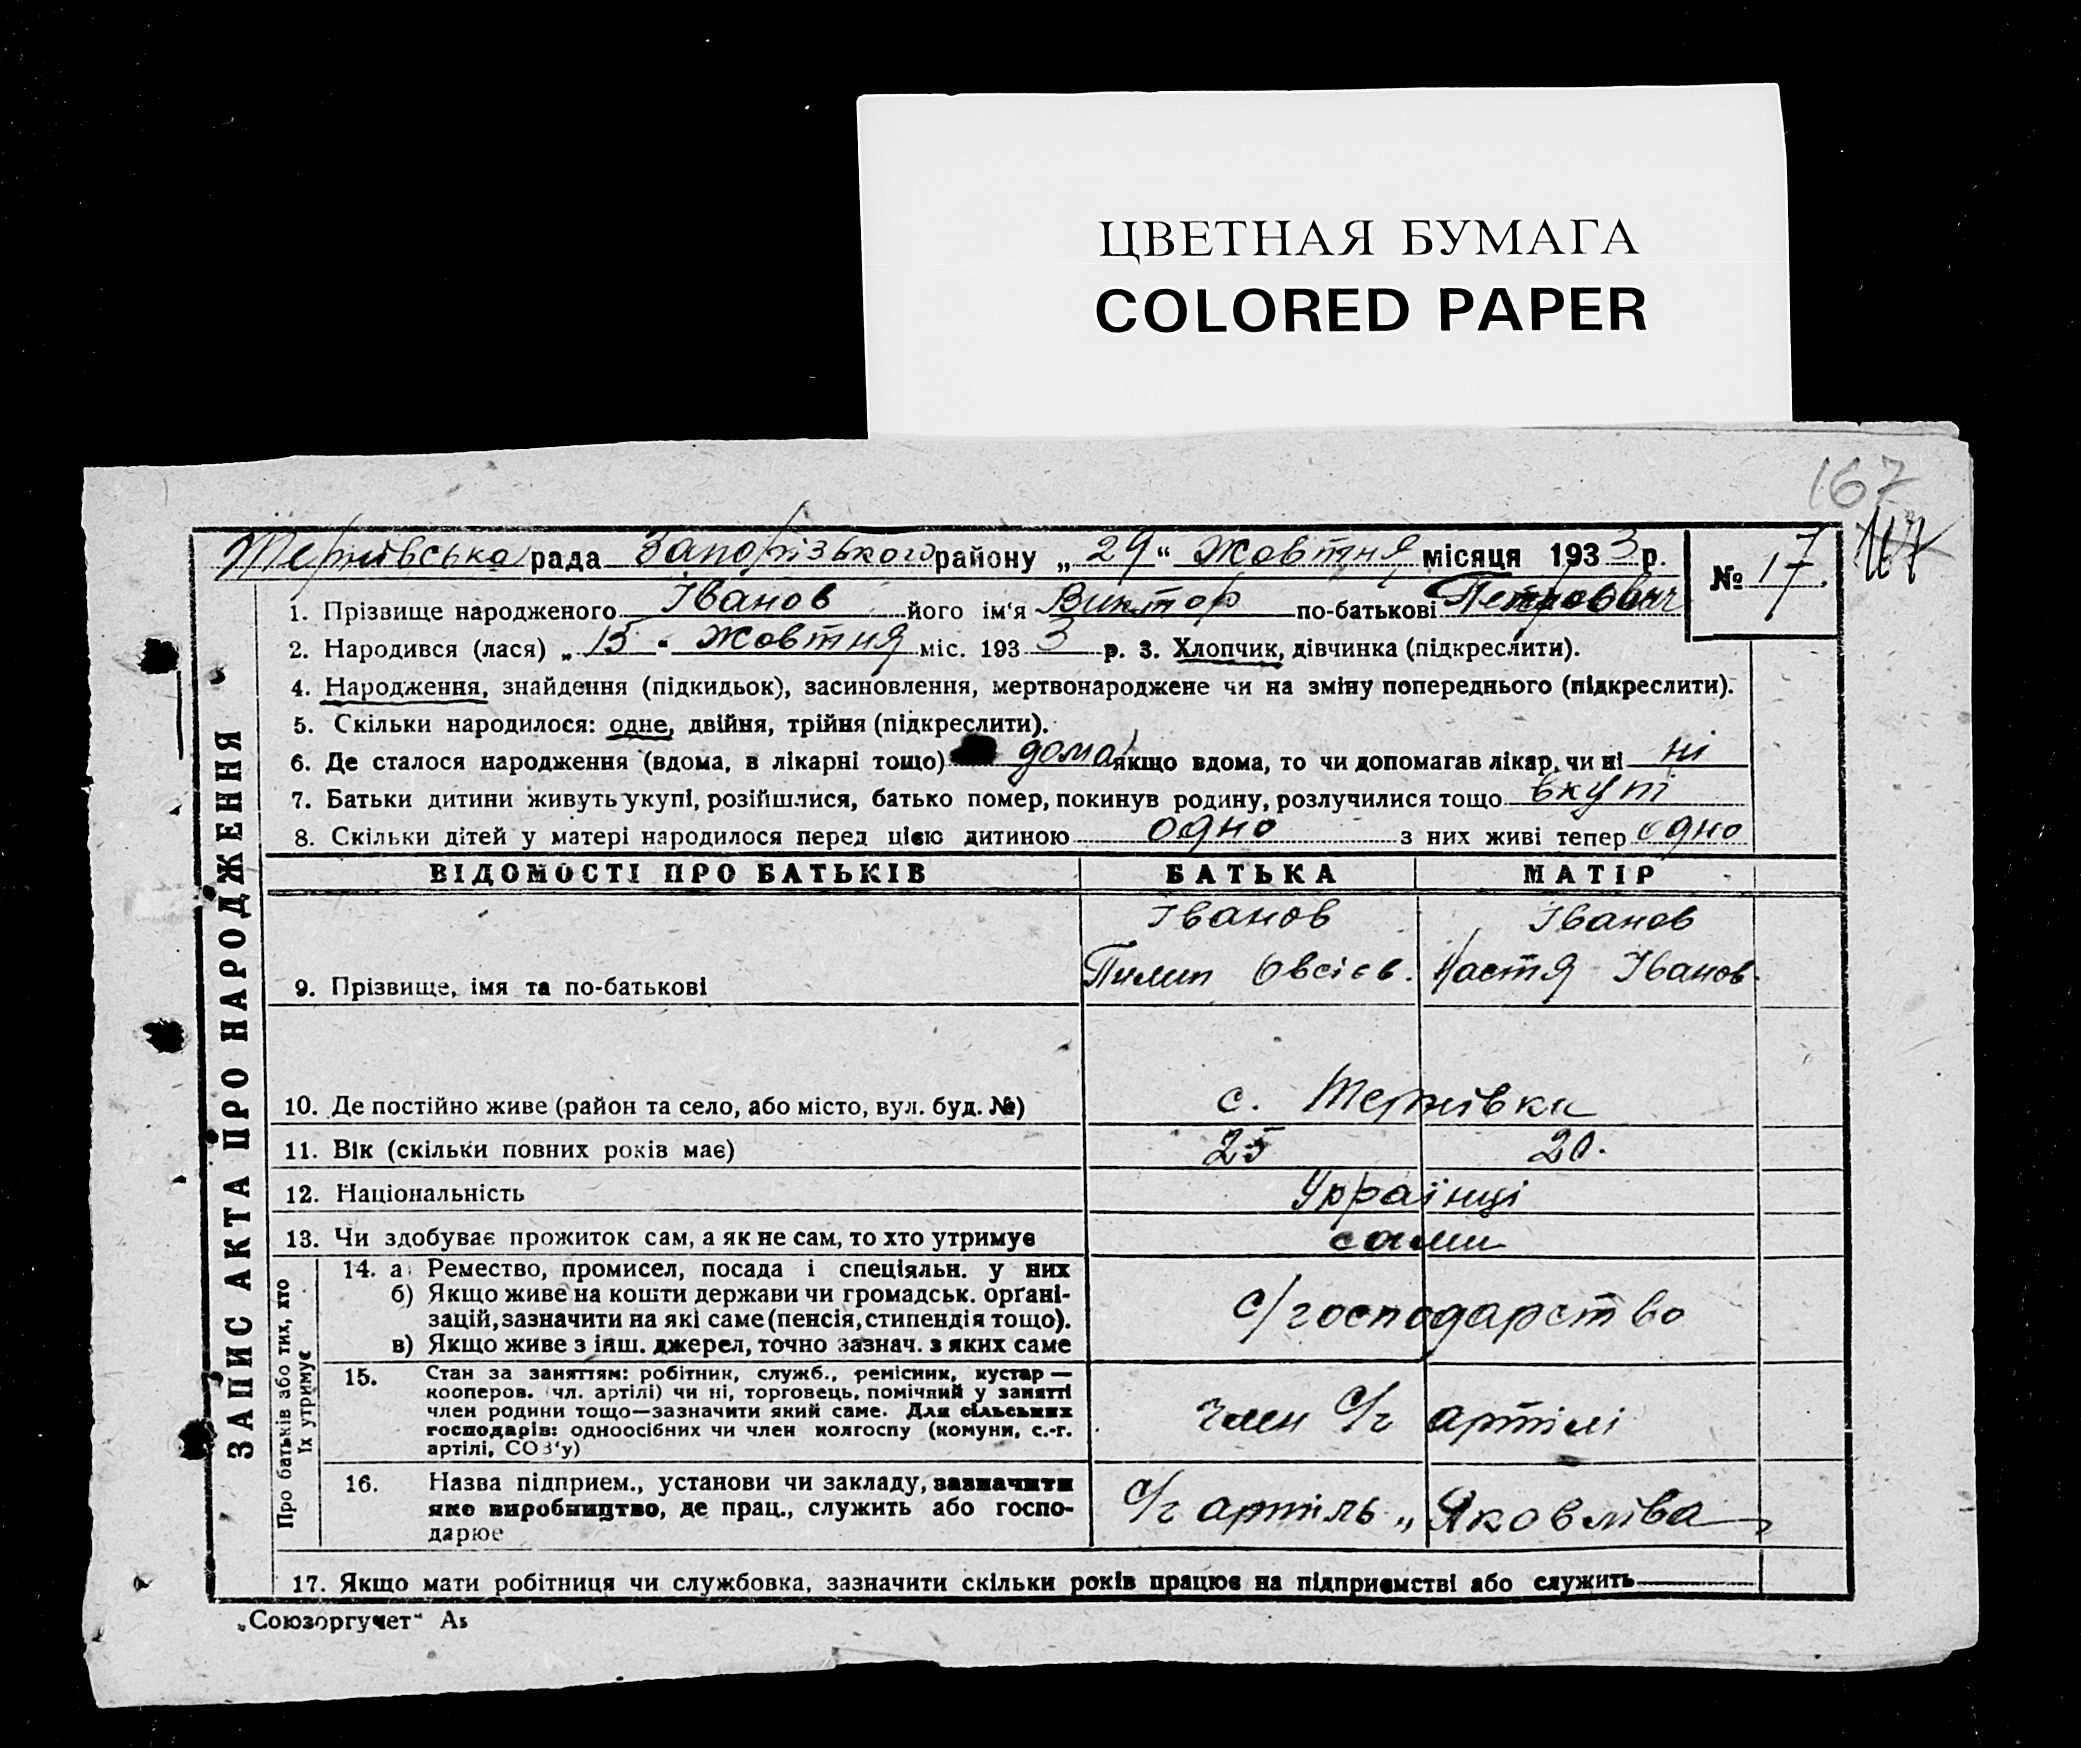 ЦВЕТНАЯ БУМАГА
COLORED PAPER
167
Тернівська рада Запорізького району „ 29 “ Жовтня місяця 1933 р. № 17.
1. Прізвище народженого Іванов його ім'я Виктор по-батькові Петрович
2. Народився (лася) „ 15 “ Жовтня міс. 1933 р. 3. Хлопчик, дівчинка (підкреслити).
4. Народження, знайдення (підкидьок), засиновлення, мертвонароджене чи на зміну попереднього (підкреслити).
5. Скільки народилося: одне, двійня, трійня (підкреслити).
6. Де сталося народження (вдома, в лікарні тощо) дома якщо вдома, то чи допомагав лікар, чи ні ні
7. Батьки дитини живуть укупі, розійшлися, батько помер, покинув родину, розлучилися тощо вкупі
8. Скільки дітей у матері народилося перед цією дитиною одно з них живі тепер одно
ЗАПИС АКТА ПРО НАРОДЖЕННЯ
ВІДОМОСТІ ПРО БАТЬКІВ БАТЬКА МАТІР
Іванов Іванов
9. Прізвище, імя та по-батькові Пилип Овсієв. Настя Іванов.
10. Де постійно живе (район та село, або місто, вул. буд. №) с. Тернівка
11. Вік (скільки повних років має) 25 20.
12. Національність Українці
13. Чи здобуває прожиток сам, а як не сам, то хто утримує сами
Про батьків або тих, хто
їх утримує
14. а) Ремество, промисел, посада і спеціяльн. у них
б) Якщо живе на кошти держави чи громадськ. орґані-
зацій, зазначити на які саме (пенсія, стипендія тощо).
в) Якщо живе з інш. джерел, точно зазнач. з яких саме
с/господарство
15. Стан за заняттям: робітник, служб., ремісник, кустар —
кооперов. (чл. артілі) чи ні, торговець, помічний у занятті
член родини тощо—зазначити який саме. Для сільських
господарів: одноосібних чи член колгоспу (комуни, с.-г.
артілі, СОЗ'у)
член с/г артілі
16. Назва підприєм., установи чи закладу, зазначити
яке виробництво, де прац., служить або госпо-
дарює
с/г артіль „Яковліва
17. Якщо мати робітниця чи службовка, зазначити скільки років працює на підприємстві або служить
„Союзоргучет“ А5